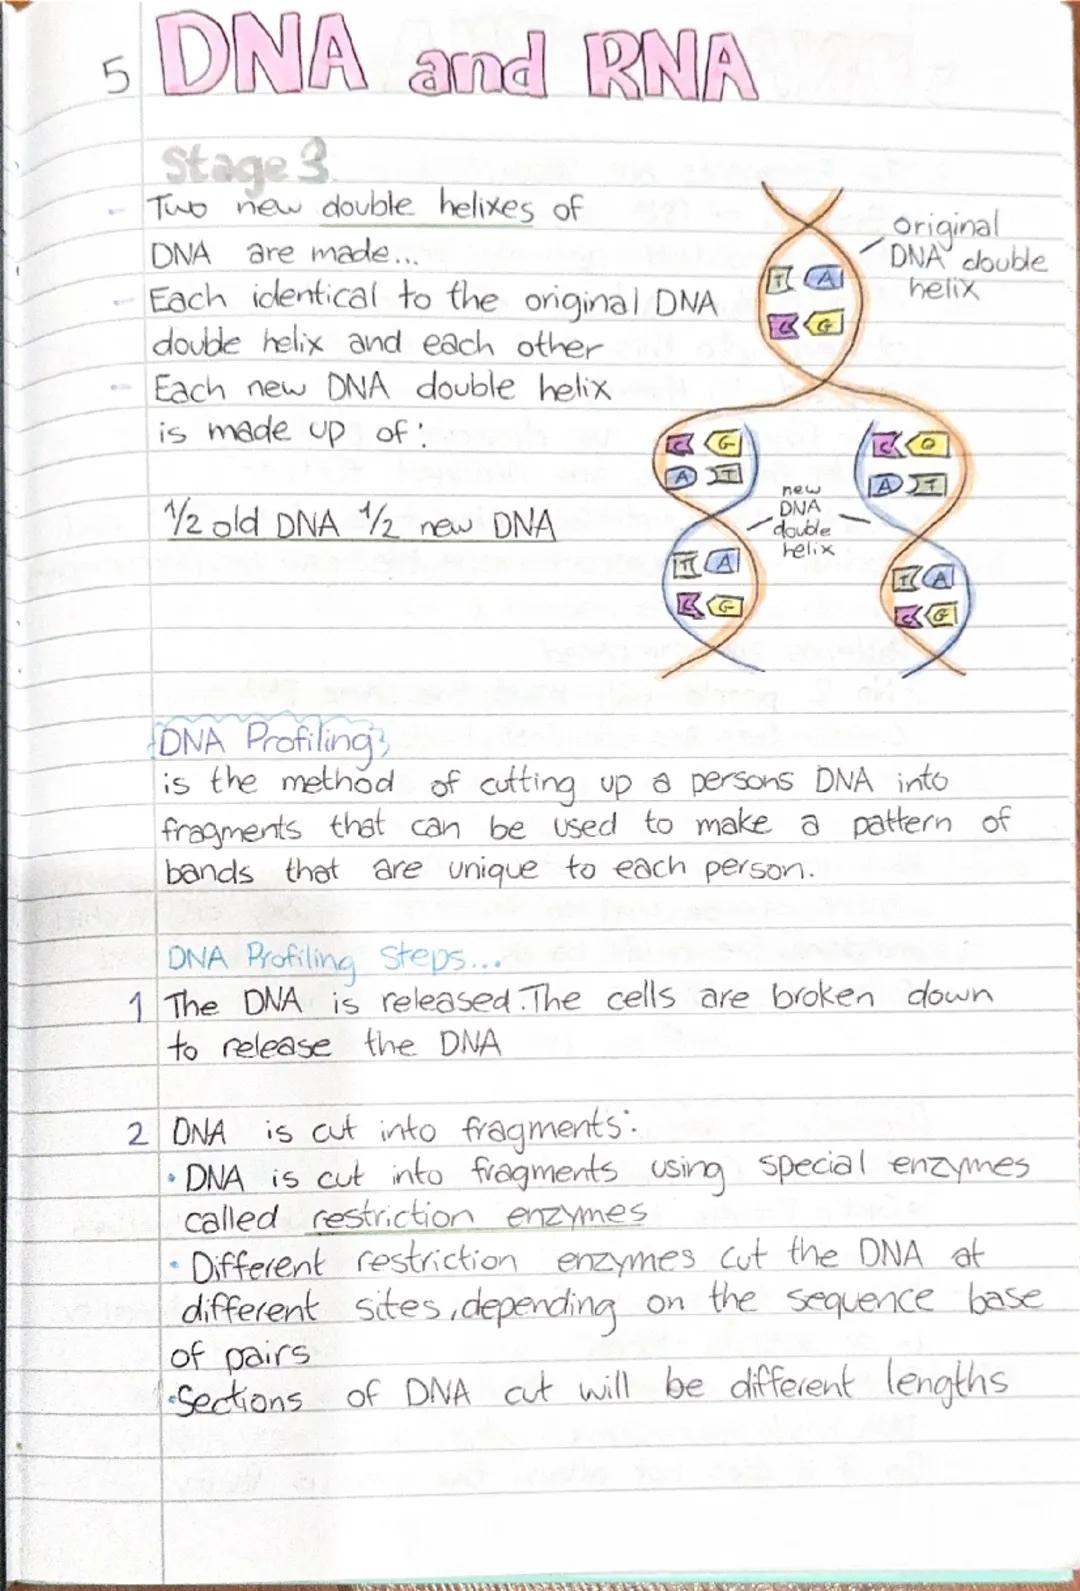 5 DNA and RNA
Stage 3
- Two new double helixes of
DNA are made...
- Each identical to the original DNA
double helix and each other
- Each new DNA double helix
is made up of:
1/2 old DNA 1/2 new DNA
original
DNA double
helix
T A
C G
C G
A T
T A
C G
new
DNA
double
helix
C G
A T
T A
C G
DNA Profiling
is the method of cutting up a persons DNA into
fragments that can be used to make a pattern of
bands that are unique to each person.
DNA Profiling Steps...
1 The DNA is released. The cells are broken down
to release the DNA
2 DNA is cut into fragments:
• DNA is cut into fragments using special enzymes
called restriction enzymes
• Different restriction enzymes cut the DNA at
different sites, depending on the sequence base
of pairs
• Sections of DNA cut will be different lengths